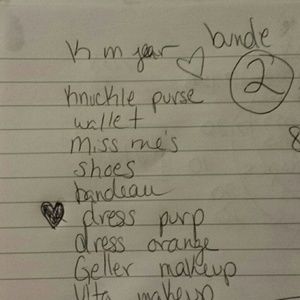 bande
K m year
2
knuckle purse
wallet
miss me's
shoes
bandeau
dress purp
dress orange
Geller makeup
Vita makeup
8